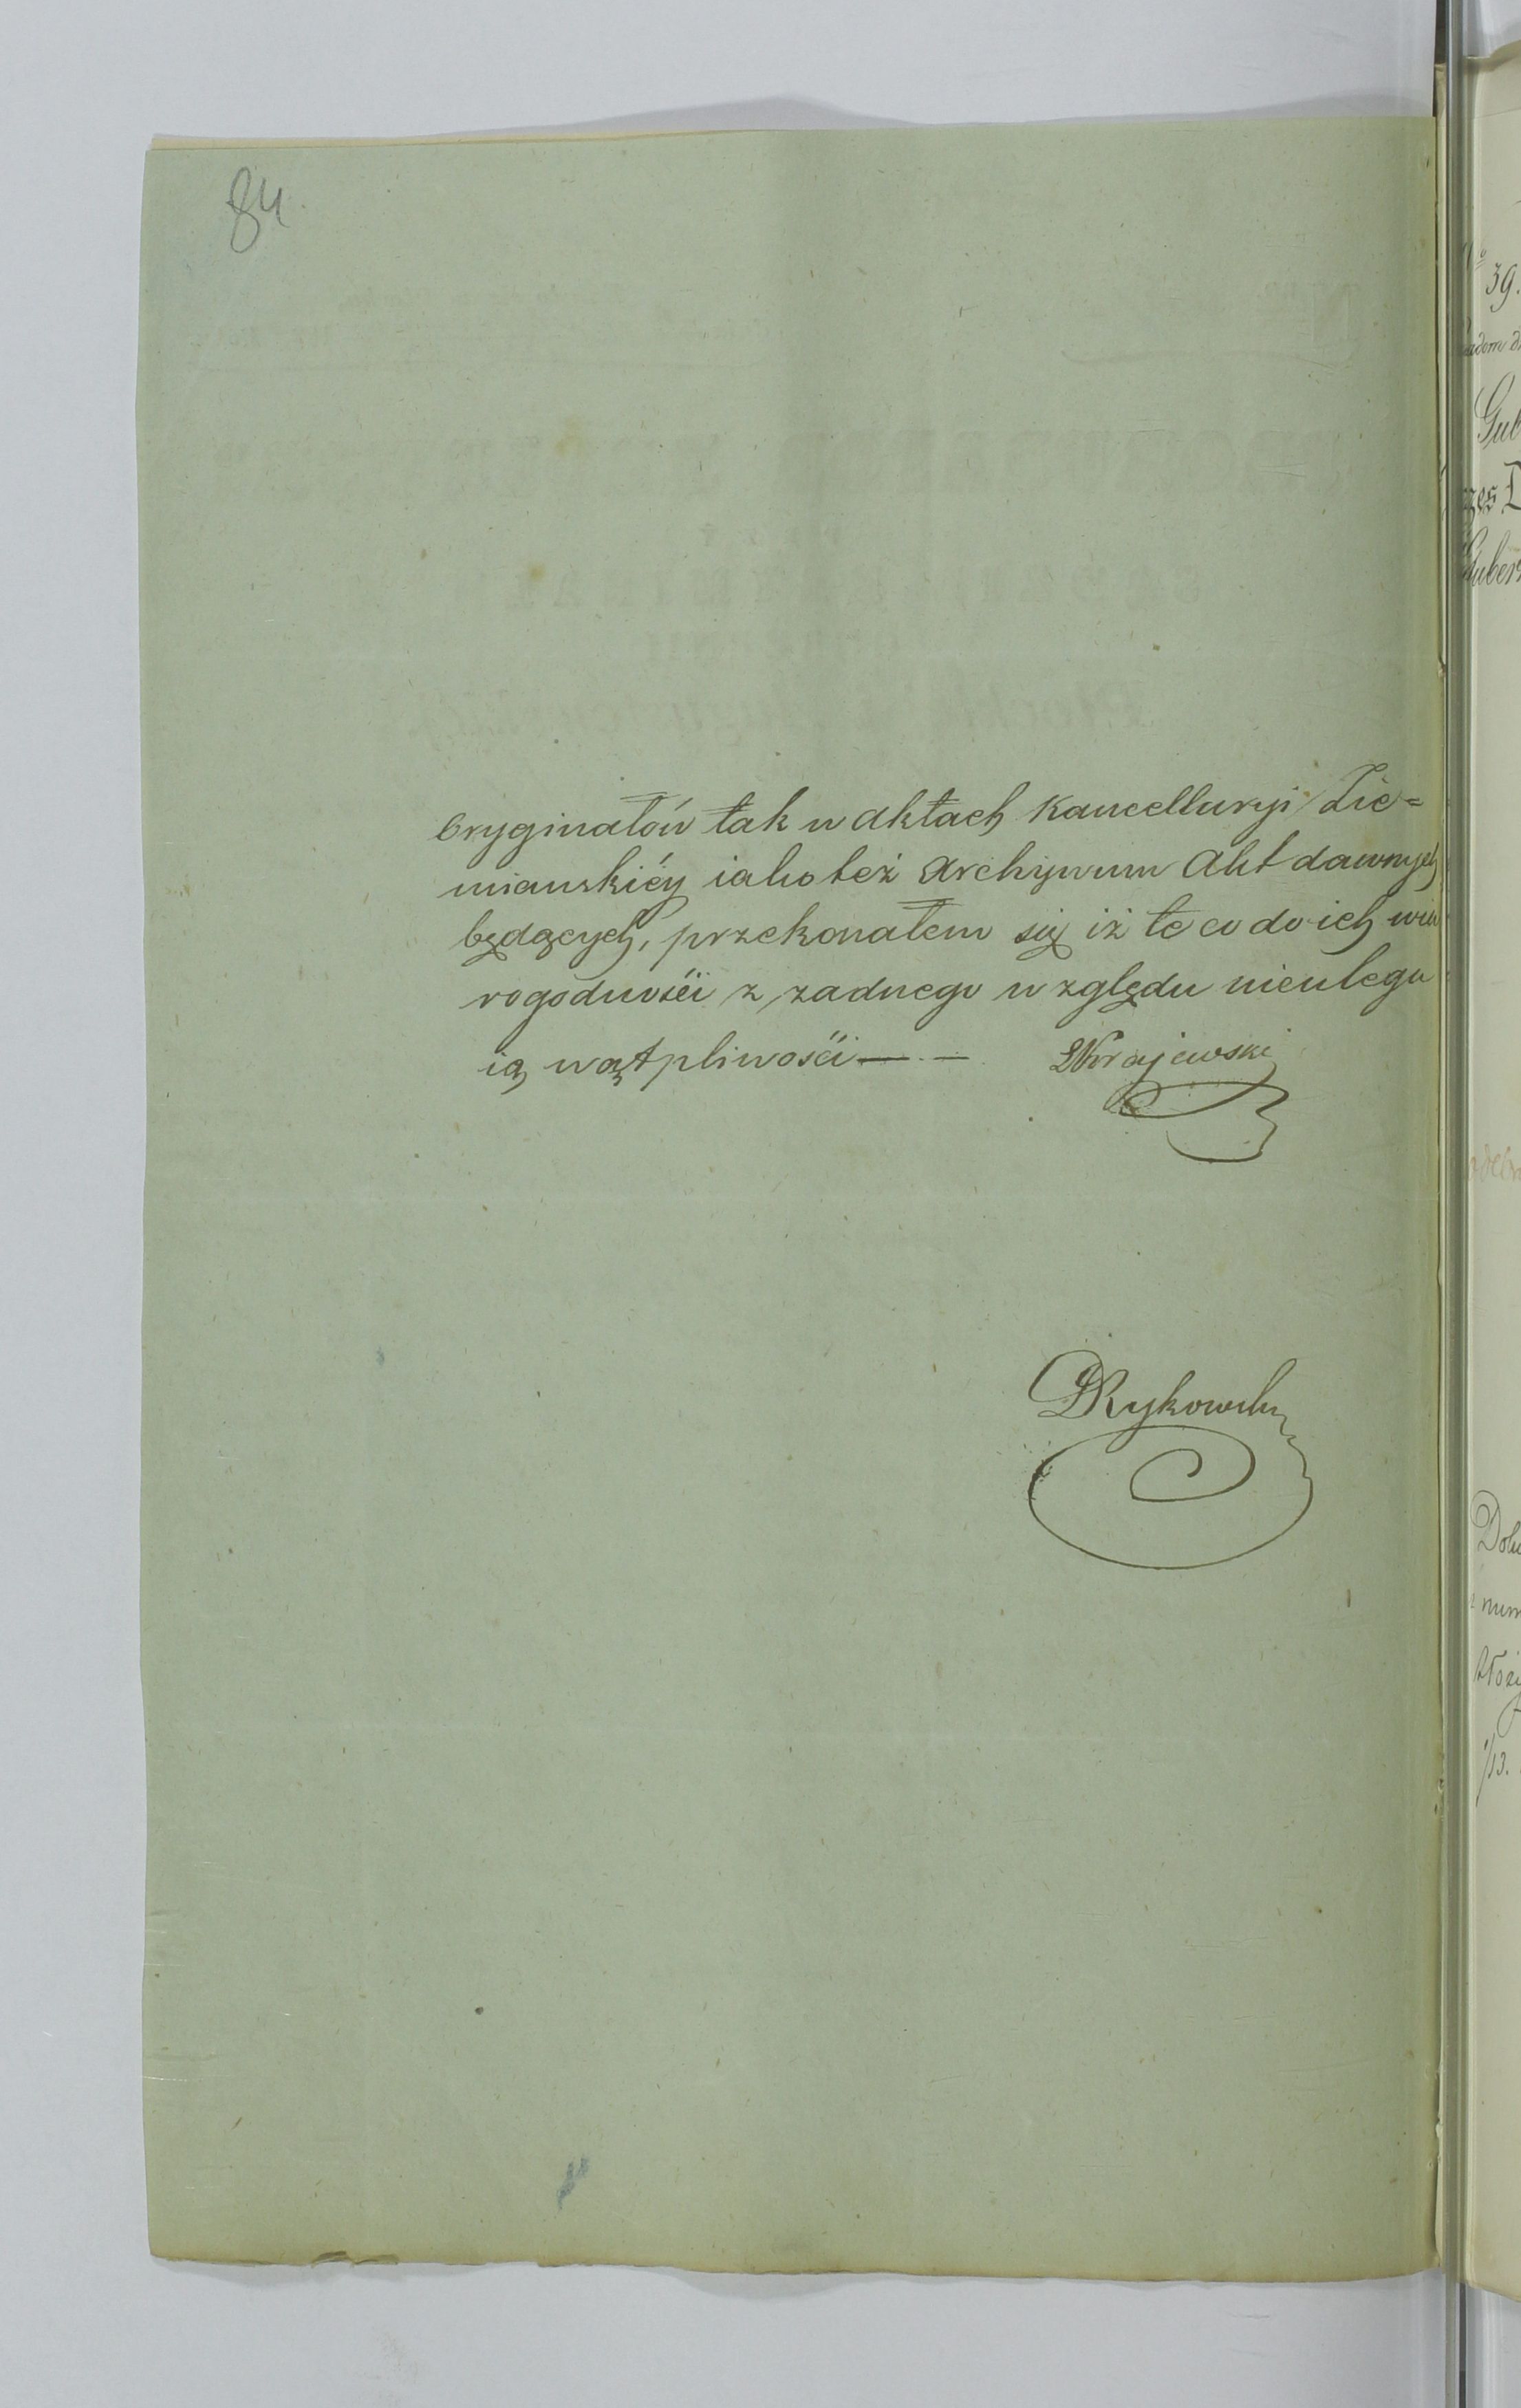 84.
Oryginałów tak w aktach Kancellaryi Zie=
miańskiéy iako też Archywum Akt dawnych
będących, przekonałem się iż te co do ich wia
rogodności z żadnego względu nieulega
ią wątpliwości — —
Krajewski
Rykowski
39.